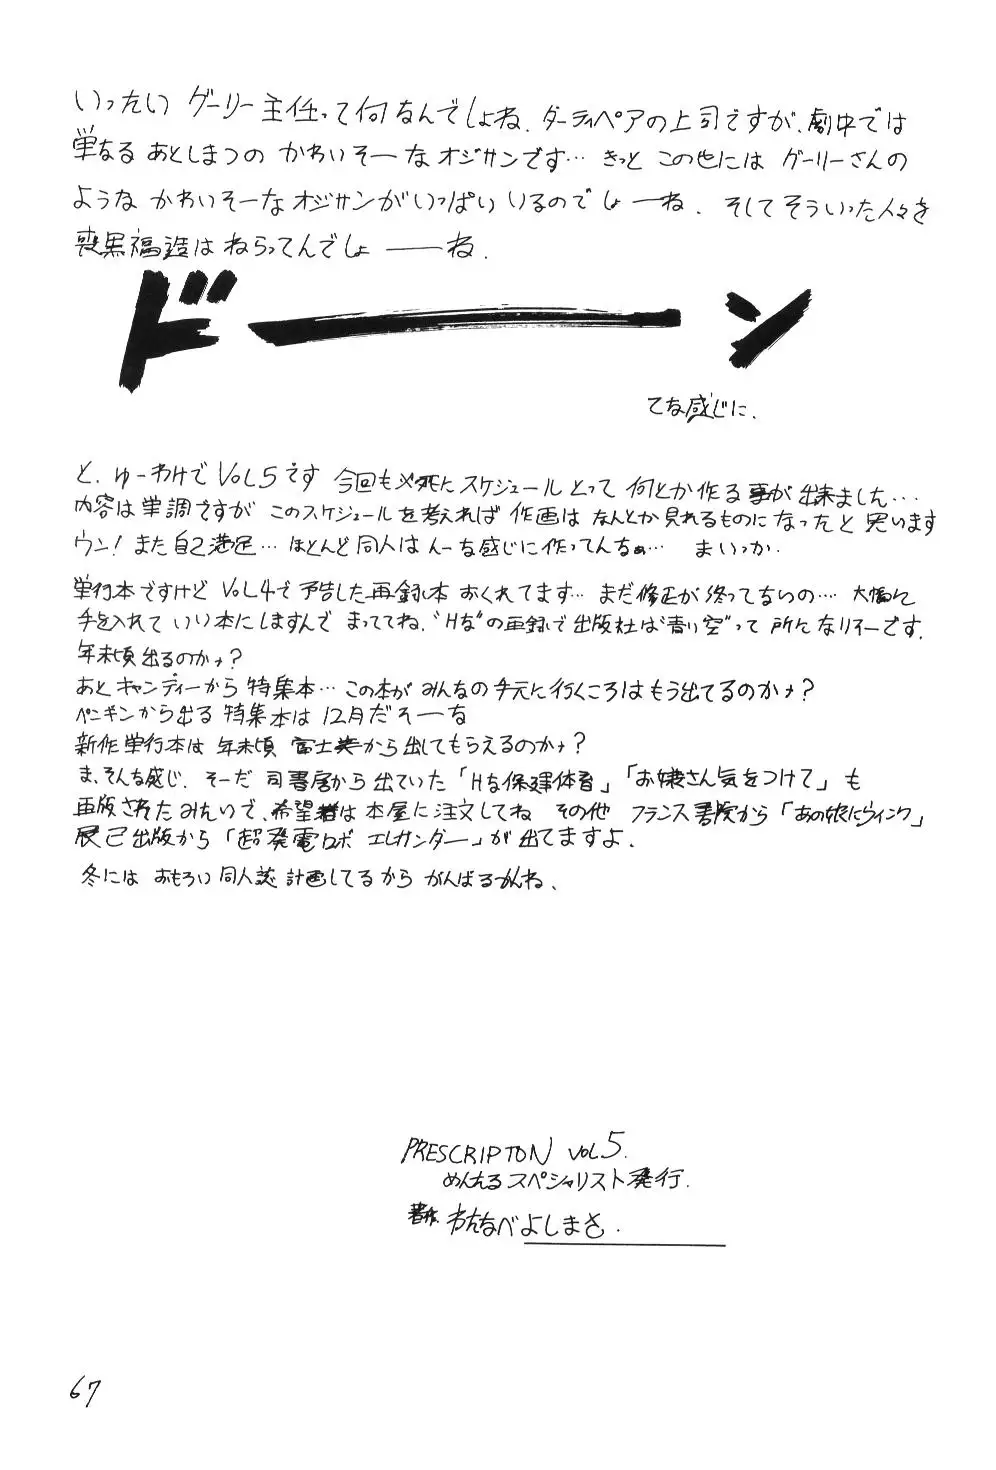 いったい グーリー主任って何なんでしょね、ダーティペアの上司ですが、劇中では
単なる あとしまつの かわいそーなオジサンです… きっと この他には グーリーさんの
ような かわいそーなオジサンがいっぱい いるのでしょーね. そしてそういった人々を
喪黒福造は ねらってんでしょ ――ね.
ドーン
てな感じに.
と、ゆーわけで VOL5です 今回も必死にスケジュールとって 何とか作る事が出来ました…
内容は単調ですが このスケジュールを考えれば 作画は なんとか見れるものになったと思います
ウン! また自己満足… ほとんど同人は んーな感じに作ってんなぁ… まいっか.
単行本ですけど VOL4で予告した再録本 おくれてます… まだ修正が終ってないの… 大幅に
手を入れて いい本にしますんで まっててね. "Hな"の再録で出版社は"青い空"って 所になりそーです.
年末頃出るのかナ?
あと キャンディーから 特集本… この本が みんなの手元に行くころはもう出てるのかナ?
ペンギンから出る 特集本は 12月だそーな
新作単行本は 年末頃 富士美から出してもらえるのかナ?
ま、そんな感じ. そーだ 司書房から出ていた「Hな保健体育」「お嬢さん気をつけて」も
再版されたみたいで、希望者は 本屋に注文してね その他 フランス書院から「あの娘にウィンク」
辰己出版から「超発電ロボ エレガンダー」が出てますよ.
冬には おもろい同人誌 計画してるから がんばるかんね、
PRESCRIPTON VOL5.
めんたるスペシャリスト発行.
著作. わたなべよしまさ.
67